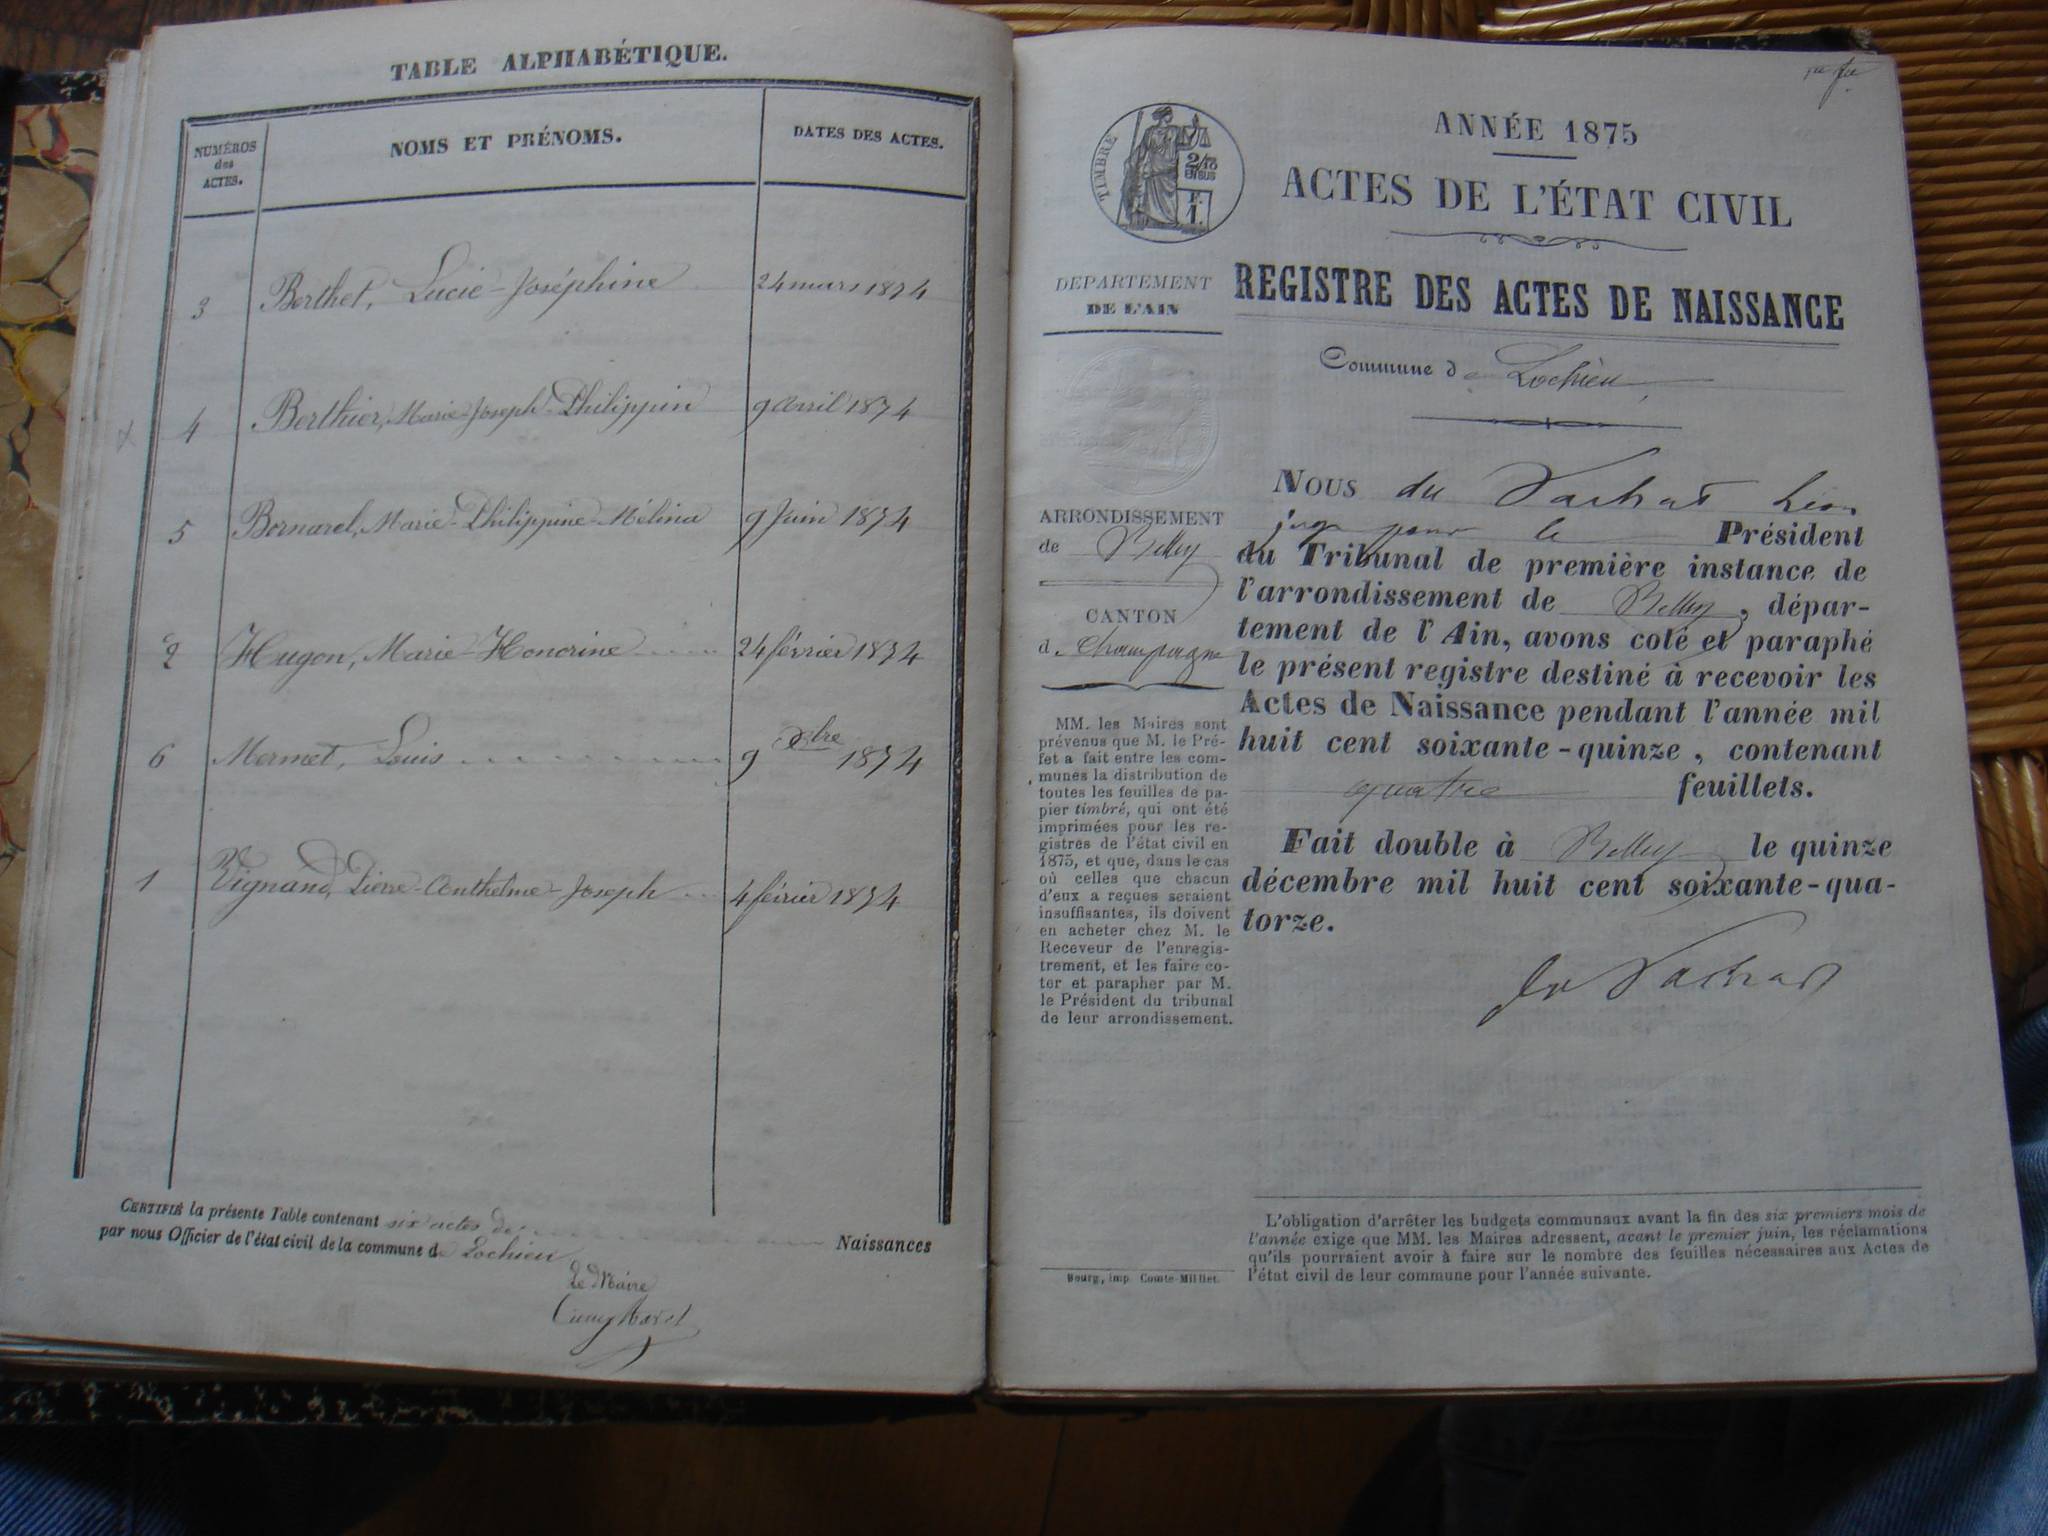 TABLE ALPHABÉTIQUE.
NUMÉROS
des
ACTES.
NOMS ET PRÉNOMS.
DATES DES ACTES.
3 Berthet, Lucie-Joséphine 24 mars 1874
4 Berthier, Marie-Joseph-Philippin 9 avril 1874
5 Bornarel, Marie-Philippine-Mélina 9 Juin 1874
2 Hugon, Marie-Honorine 24 février 1874
6 Mermet, Louis 9 xbre 1874
1 Vignand, Pierre-Anthelme-Joseph 4 février 1874
CERTIFIÉ la présente Table contenant six actes de Naissances
par nous Officier de l'état civil de la commune de Lochieu
Le Maire
1er fet
TIMBRE
2/10
EN SUS
F.
1.
ANNÉE 1875
ACTES DE L'ÉTAT CIVIL
DEPARTEMENT
DE L'AIN
REGISTRE DES ACTES DE NAISSANCE
Commune de Lochieu
ARRONDISSEMENT
de Belley
CANTON
d. Champagne
MM. les Maires sont
prévenus que M. le Pré-
fet a fait entre les com-
munes la distribution de
toutes les feuilles de pa-
pier timbré, qui ont été
imprimées pour les re-
gistres de l'état civil en
1875, et que, dans le cas
où celles que chacun
d'eux a reçues seraient
insuffisantes, ils doivent
en acheter chez M. le
Receveur de l'enregis-
trement, et les faire co-
ter et parapher par M.
le Président du tribunal
de leur arrondissement.
Bourg, imp. Comte-Milliet.
NOUS du Vachat Léon
juge pour le Président
du Tribunal de première instance de
l'arrondissement de Belley, dépar-
tement de l'Ain, avons coté et paraphé
le présent registre destiné à recevoir les
Actes de Naissance pendant l'année mil
huit cent soixante-quinze, contenant
quatre feuillets.
Fait double à Belley le quinze
décembre mil huit cent soixante-qua-
torze.
du Vachat
L'obligation d'arrêter les budgets communaux avant la fin des six premiers mois de
l'année exige que MM. les Maires adressent, avant le premier juin, les réclamations
qu'ils pourraient avoir à faire sur le nombre des feuilles nécessaires aux Actes de
l'état civil de leur commune pour l'année suivante.